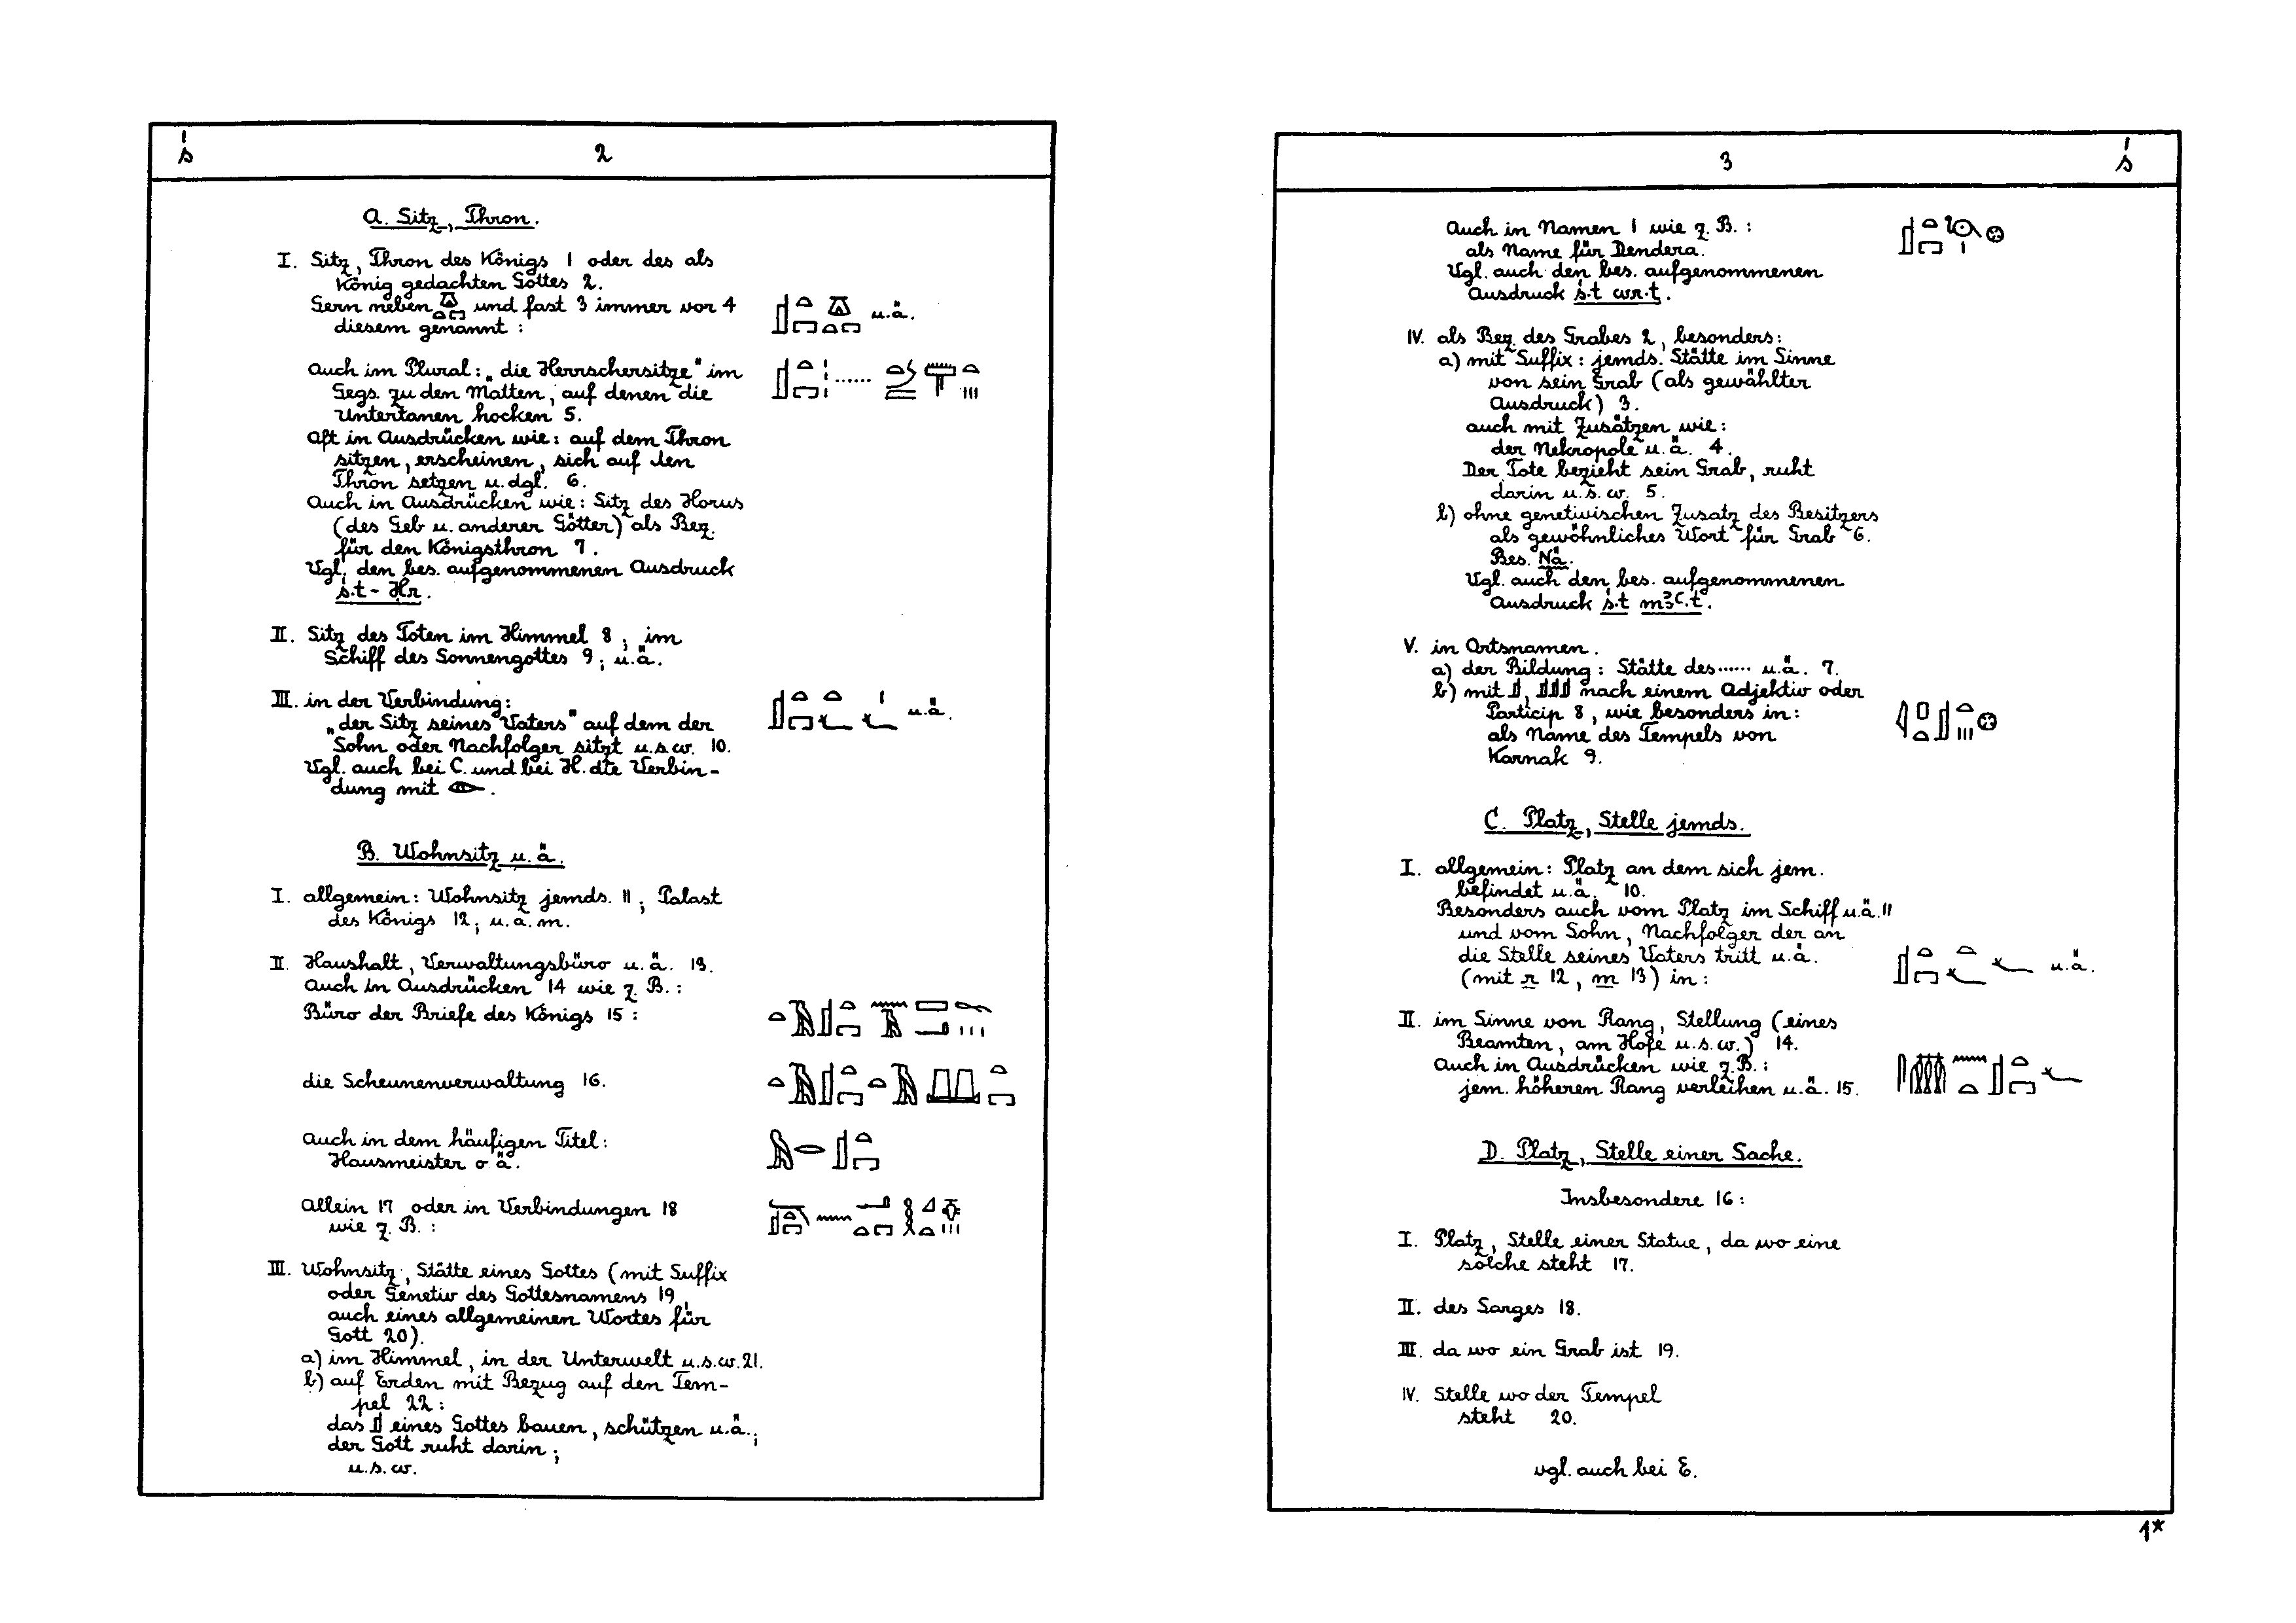 ś 2
A. Sitz, Thron.
I. Sitz, Thron des Königs 1 oder des als
König gedachten Gottes 2.
Gern neben und fast 3 immer vor 4
diesem genannt : u.ä.
Auch im Plural: „die Herrschersitze" im
Gegs. zu den Matten, auf denen die
Untertanen hocken 5.
Oft in Ausdrücken wie: auf dem Thron
sitzen, erscheinen, sich auf den
Thron setzen u. dgl. 6.
Auch in Ausdrücken wie: Sitz des Horus
(des Geb u. anderer Götter) als Bez.
für den Königsthron 7.
Vgl. den bes. aufgenommenen Ausdruck
ś.t - Ḥr.
II. Sitz des Toten im Himmel 8; im
Schiff des Sonnengottes 9; u.ä.
III. in der Verbindung: u.ä.
„der Sitz seines Vaters" auf dem der
Sohn oder Nachfolger sitzt u.s.w. 10.
Vgl. auch bei C. und bei H. die Verbin-
dung mit .
B. Wohnsitz u.ä.
I. allgemein: Wohnsitz jemds. 11; Palast
des Königs 12; u.a.m.
II. Haushalt, Verwaltungsbüro u.ä. 13.
Auch in Ausdrücken 14 wie z.B.:
Büro der Briefe des Königs 15 :
die Scheunenverwaltung 16.
Auch in dem häufigen Titel:
Hausmeister o.ä.
Allein 17 oder in Verbindungen 18
wie z.B. :
III. Wohnsitz, Stätte eines Gottes (mit Suffix
oder Genetiv des Gottesnamens 19,
auch eines allgemeinen Wortes für
Gott 20).
a) im Himmel, in der Unterwelt u.s.w. 21.
b) auf Erden mit Bezug auf den Tem-
pel 22 :
das eines Gottes bauen, schützen u.ä.;
der Gott ruht darin;
u.s.w.
3 ś
Auch in Namen 1 wie z.B. :
als Name für Dendera.
Vgl. auch den bes. aufgenommenen
Ausdruck ś.t wr.t.
IV. als Bez. des Grabes 2, besonders:
a) mit Suffix: jemds. Stätte im Sinne
von sein Grab (als gewählter
Ausdruck) 3.
auch mit Zusätzen wie:
der Nekropole u.ä. 4.
Der Tote bezieht sein Grab, ruht
darin u.s.w. 5.
b) ohne genetivischen Zusatz des Besitzers
als gewöhnliches Wort für Grab 6.
Bes. Nä.
Vgl. auch den bes. aufgenommenen
Ausdruck ś.t mꜣꜥ.t.
V. in Ortsnamen.
a) der Bildung: Stätte des ...... u.ä. 7.
b) mit , nach einem Adjektiv oder
Particip 8, wie besonders in:
als Name des Tempels von
Karnak 9.
C. Platz, Stelle jemds.
I. allgemein: Platz an dem sich jem.
befindet u.ä. 10.
Besonders auch vom Platz im Schiff u.ä. 11
und vom Sohn, Nachfolger der an
die Stelle seines Vaters tritt u.ä.
(mit r 12, m 13) in: u.ä.
II. im Sinne von Rang, Stellung (eines
Beamten, am Hofe u.s.w.) 14.
Auch in Ausdrücken wie z.B.:
jem. höheren Rang verleihen u.ä. 15.
D. Platz, Stelle einer Sache.
Insbesondere 16 :
I. Platz, Stelle einer Statue, da wo eine
solche steht 17.
II. des Sarges 18.
III. da wo ein Grab ist 19.
IV. Stelle wo der Tempel
steht 20.
vgl. auch bei E.
1*